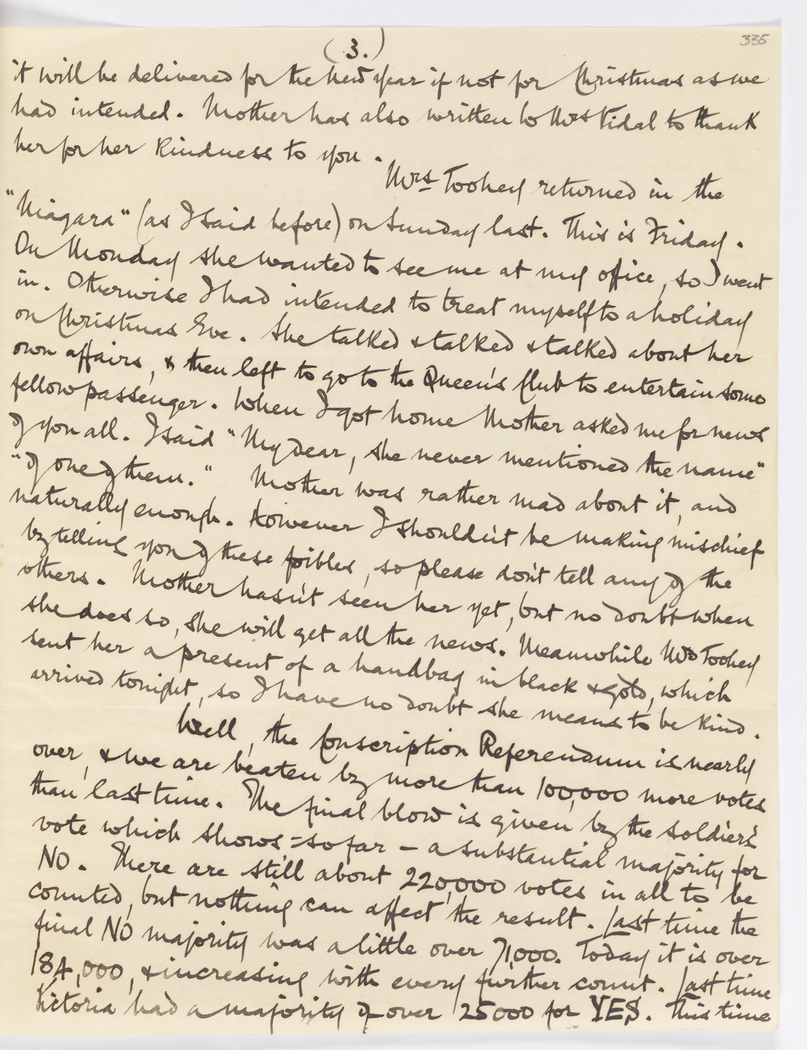 (3.)
335
it will be delivered for the New Year if not for Christmas as we
had intended. Mother has also written to Mrs Tidal to thank
her for her kindness to you.
Mrs Toohey returned in the
"Niagara" (as I said before) on Sunday last. This is Friday.
On Monday she wanted to see me at my office, so I went
in. Otherwise I had intended to treat myself to a holiday
on Christmas Eve. She talked & talked & talked about her
own affairs, & then left to go to the Queen's Club to entertain some
fellow passenger. When I got home Mother asked me for news
of you all. I said "My dear, she never mentioned the name"
"of one of them." Mother was rather mad about it, and
naturally enough. However I shouldn't be making mischief
by telling you of these foibles, so please don't tell any of the
others. Mother hasn't seen her yet, but no doubt when
she does so, she will get all the news. Meanwhile Mrs Toohey
sent her a present of a handbag in black & gold, which
arrived tonight, so I have no doubt she means to be kind.
Well, the Conscription Referendum is nearly
over, & we are beaten by more than 100,000 more votes
than last time. The final blow is given by the soldiers'
vote which shows - so far - a substantial majority for
NO. There are still about 220,000 votes in all to be
counted, but nothing can affect the result. Last time the
final NO majority was a little over 71,000. Today it is over
184,000, & increasing with every further count. Last time
Victoria had a majority of over 25000 for YES. This time